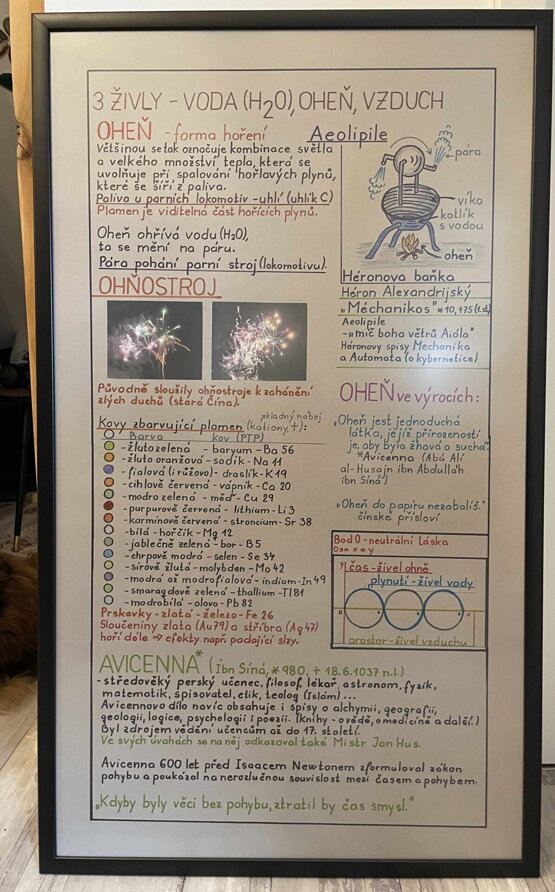 3 ŽIVLY - VODA (H2O), OHEŇ, VZDUCH
OHEŇ - forma hoření
Většinou se tak označuje kombinace světla
a velkého množství tepla, která se
uvolňuje při spalování hořlavých plynů,
které se šíří z paliva.
Palivo u parních lokomotiv - uhlí (uhlík C)
Plamen je viditelná část hořících plynů.
Oheň ohřívá vodu (H2O),
ta se mění na páru.
Pára pohání parní stroj (lokomotivu).
Aeolipile
pára
víko
kotlík
s vodou
oheň
Héronova baňka
Héron Alexandrijský
"Méchanikos" *10, †75 (1.st)
Aeolipile
-"míč boha větrů Aióla"
Héronovy spisy Mechanika
a Automata (o kybernetice)
OHŇOSTROJ
Původně sloužily ohňostroje k zahánění
zlých duchů (stará Čína).
Kovy zbarvující plamen (kationy,+):
kladný náboj
Barva kov (PTP)
-žlutozelená - baryum - Ba 56
-žluto oranžová - sodík - Na 11
-fialová (i růžovo)- draslík - K 19
-cihlově červená - vápník - Ca 20
-modro zelená - měď - Cu 29
-purpurově červená - lithium - Li 3
-karmínově červená - stroncium - Sr 38
-bílá - hořčík - Mg 12
-jablečně zelená - bor - B5
-chrpově modrá - selen - Se 34
-sírově žlutá - molybden - Mo 42
-modrá až modrofialová - indium - In 49
-smaragdově zelená - thallium - Tl 81
-modrobílá - olovo - Pb 82
Prskavky - zlatá - železo - Fe 26
Sloučeniny zlata (Au79) a stříbra (Ag 47)
hoří déle ⇒ efekty, např. padající slzy.
OHEŇ ve výrocích:
"Oheň jest jednoduchá
látka, jejíž přirozeností
je, aby byla žhavá a suchá."
*Avicenna (Abú Alí
al-Husajn ibn Abdulláh
ibn Síná)
"Oheň do papíru nezabalíš."
čínské přísloví
Bod 0 - neutrální láska
Osa x a y
y
čas - živel ohně
plynutí - živel vody
0
x
prostor - živel vzduchu
AVICENNA* (Ibn Síná, *980, + 18.6.1037 n.l.)
-středověký perský učenec, filosof, lékař, astronom, fyzik,
matematik, spisovatel, etik, teolog (Islám) ...
Avicennovo dílo navíc obsahuje i spisy o alchymii, geografii,
geologii, logice, psychologii i poezii. (Knihy - o vědě, o medicíně a další.)
Byl zdrojem vědění učencům až do 17. století.
Ve svých úvahách se na něj odkazoval také Mistr Jan Hus.
Avicenna 600 let před Isaacem Newtonem zformuloval zákon
pohybu a poukázal na nerozlučnou souvislost mezi časem a pohybem.
"Kdyby byly věci bez pohybu, ztratil by čas smysl."